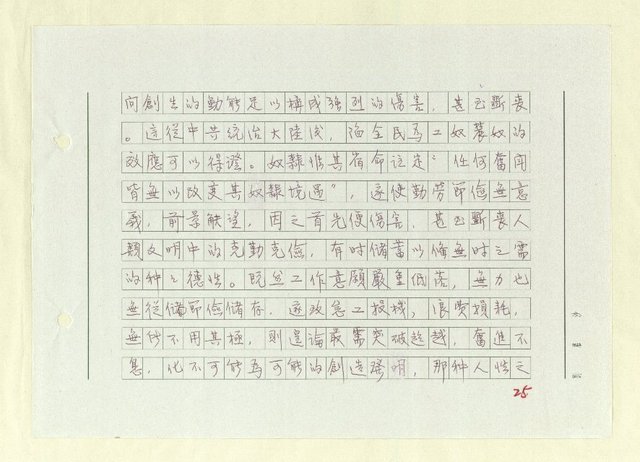 向創生的動能足以構成強烈的傷害，甚至斷喪
。這從中共統治大陸後，淪全民為工奴農奴的
效應可以得證。奴隸惟其宿命註定“任何奮鬥
皆無以改變其奴隸境遇”，遂使勤勞節儉無意
義，前景無望，因之首先便傷害，甚至斷喪人
類文明中的克勤克儉，有時儲蓄以備無時之需
的種種德性。既然工作意願嚴重低落，無力也
無從儲節儉儲存，遂致怠工損機，浪費損耗，
無所不用其極，則遑論最需突破超越，奮進不
息，化不可能為可能的創造發明，那種人性之
25